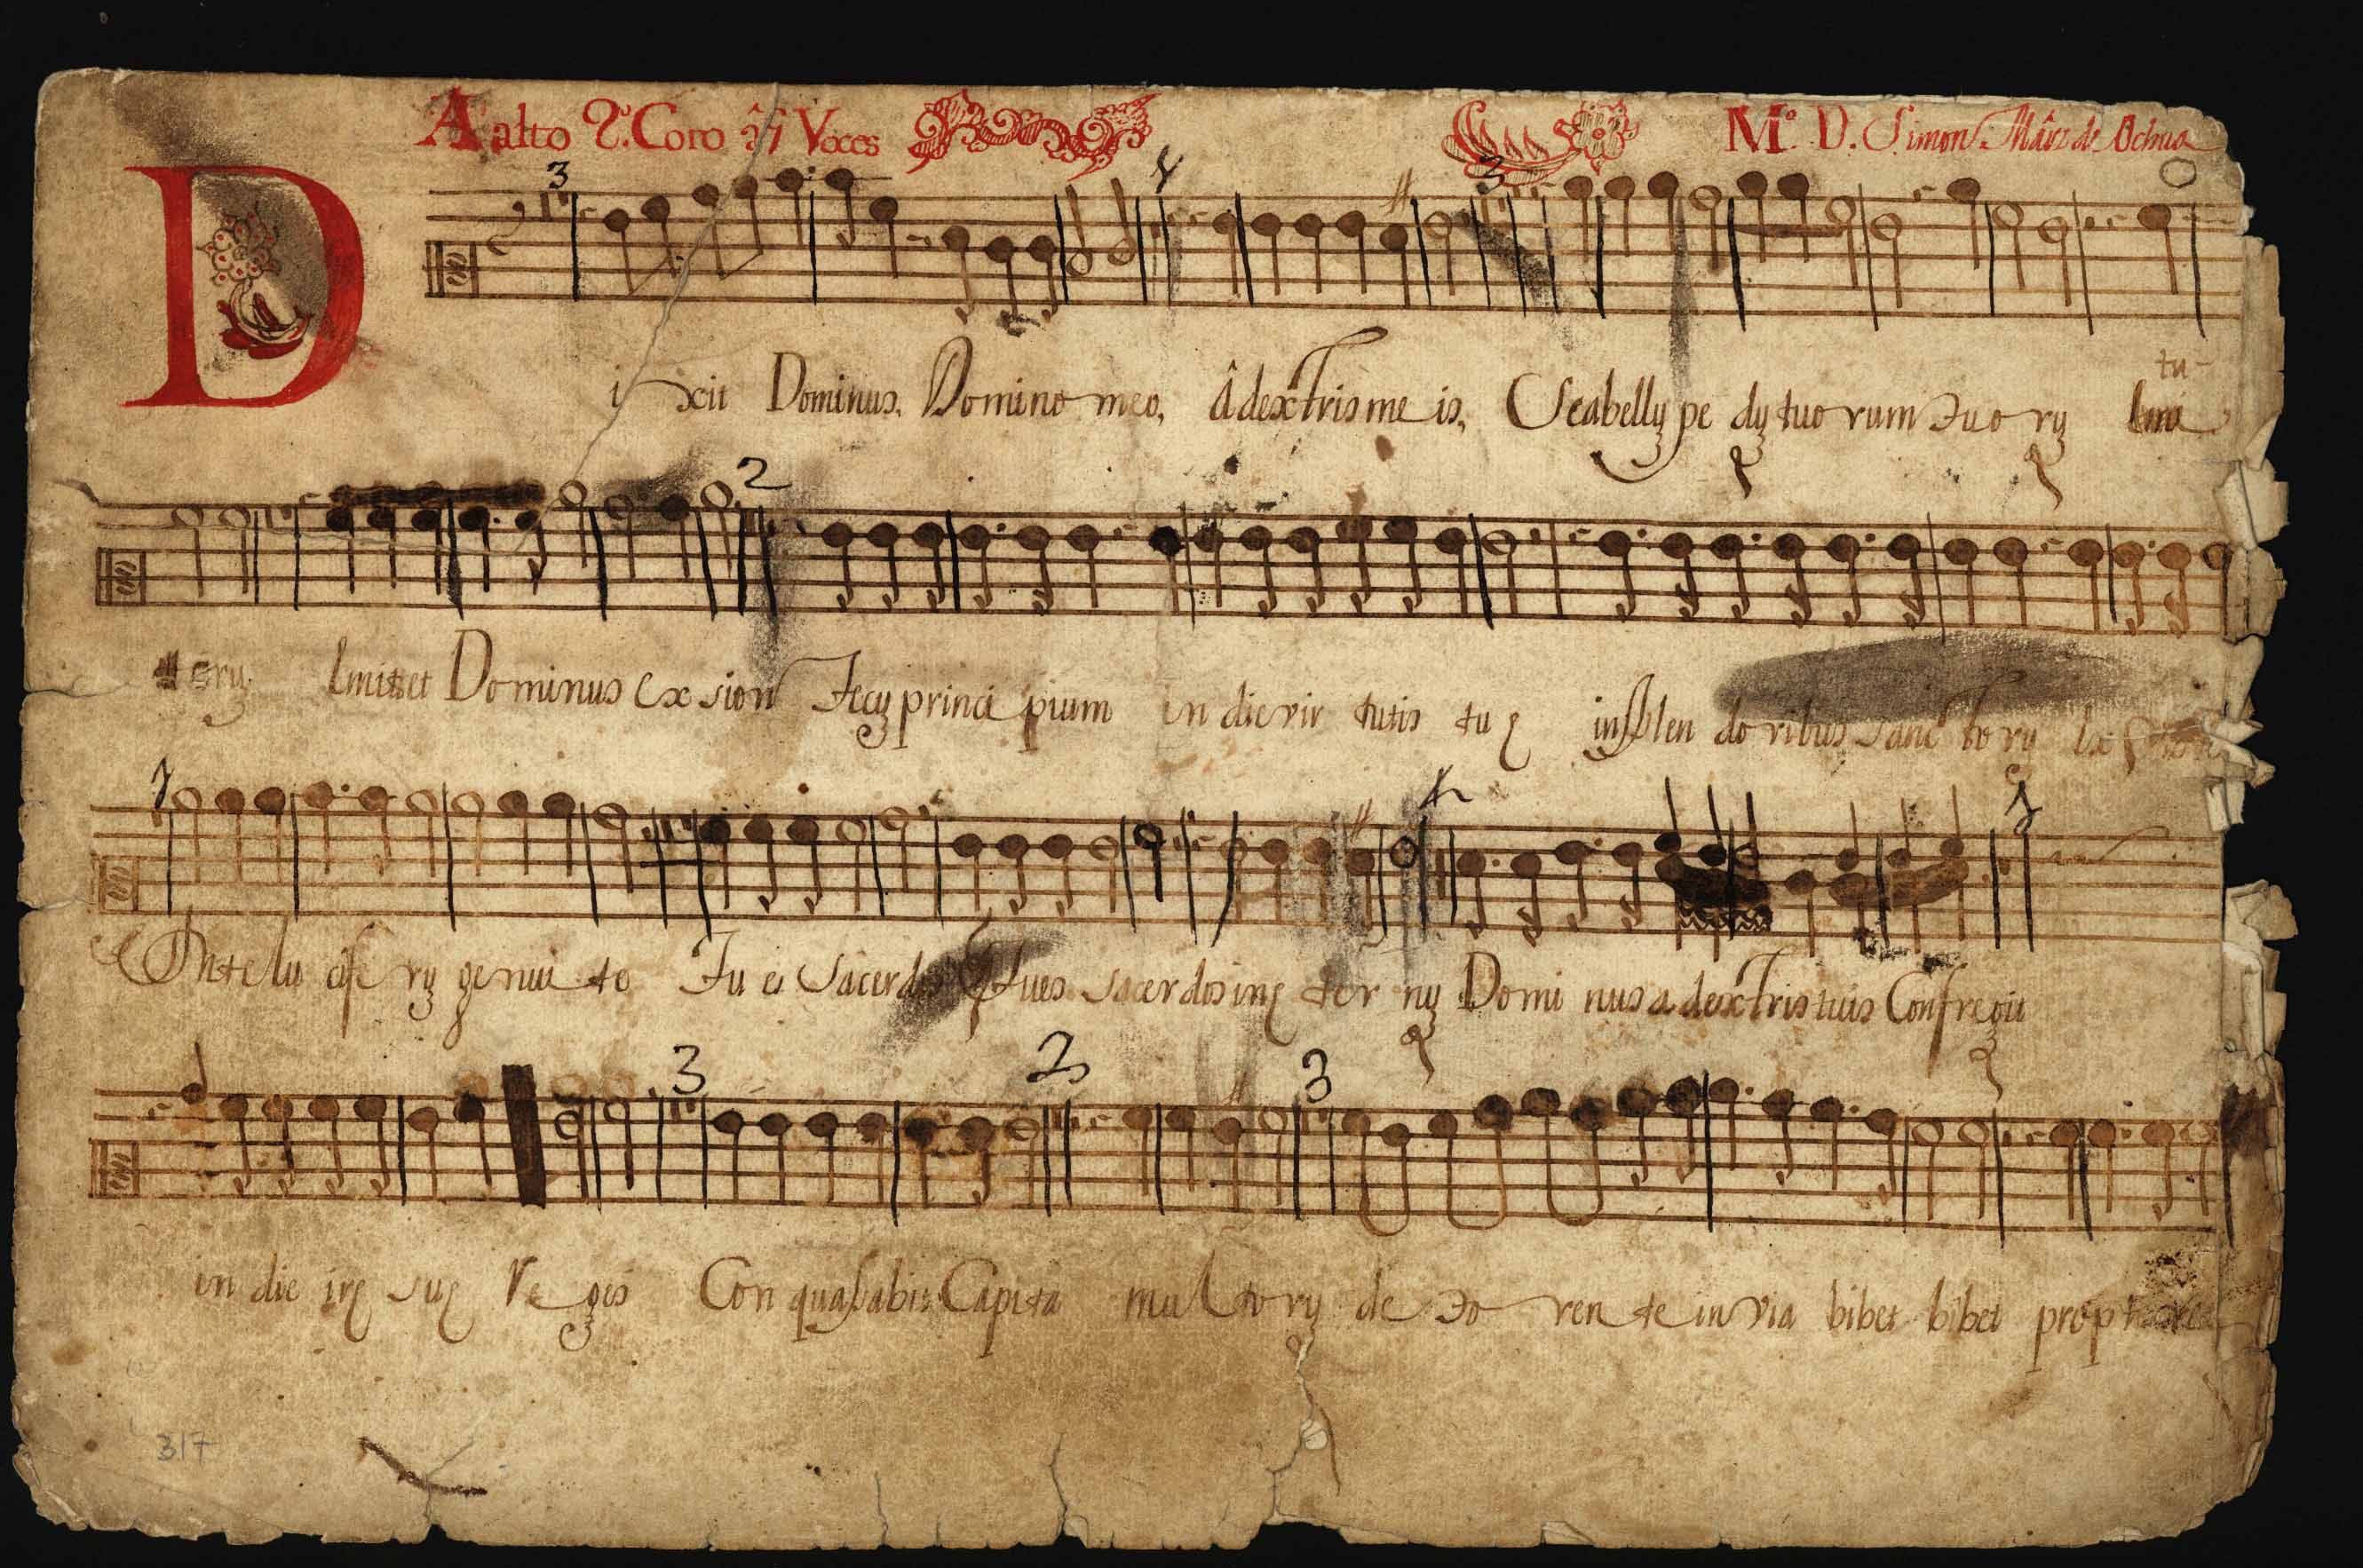 Aalto 2º. Coro â 7 Voces Mº. D. Simon Mârz de Ochua
3 4 3
tu-
Dixit Dominus, Domino meo, Â dextris me is, Scabellȝ pe dȝ tuo rum tuo rȝ
2
orȝ. Emittet Dominus ex sion Tecȝ princi pium in die vir tutis tuę in splen doribus sanc to rȝ
1 4 1
Ante lu cife rȝ genui te Tu es Sacerdos Tu es sacerdos in ę ter nȝ Domi nus a dextris tuis Confregit
3 2 3
in die irę suę Re ges Con quasabit Capita mul torȝ de to ren te in via bibet bibet propterea
317